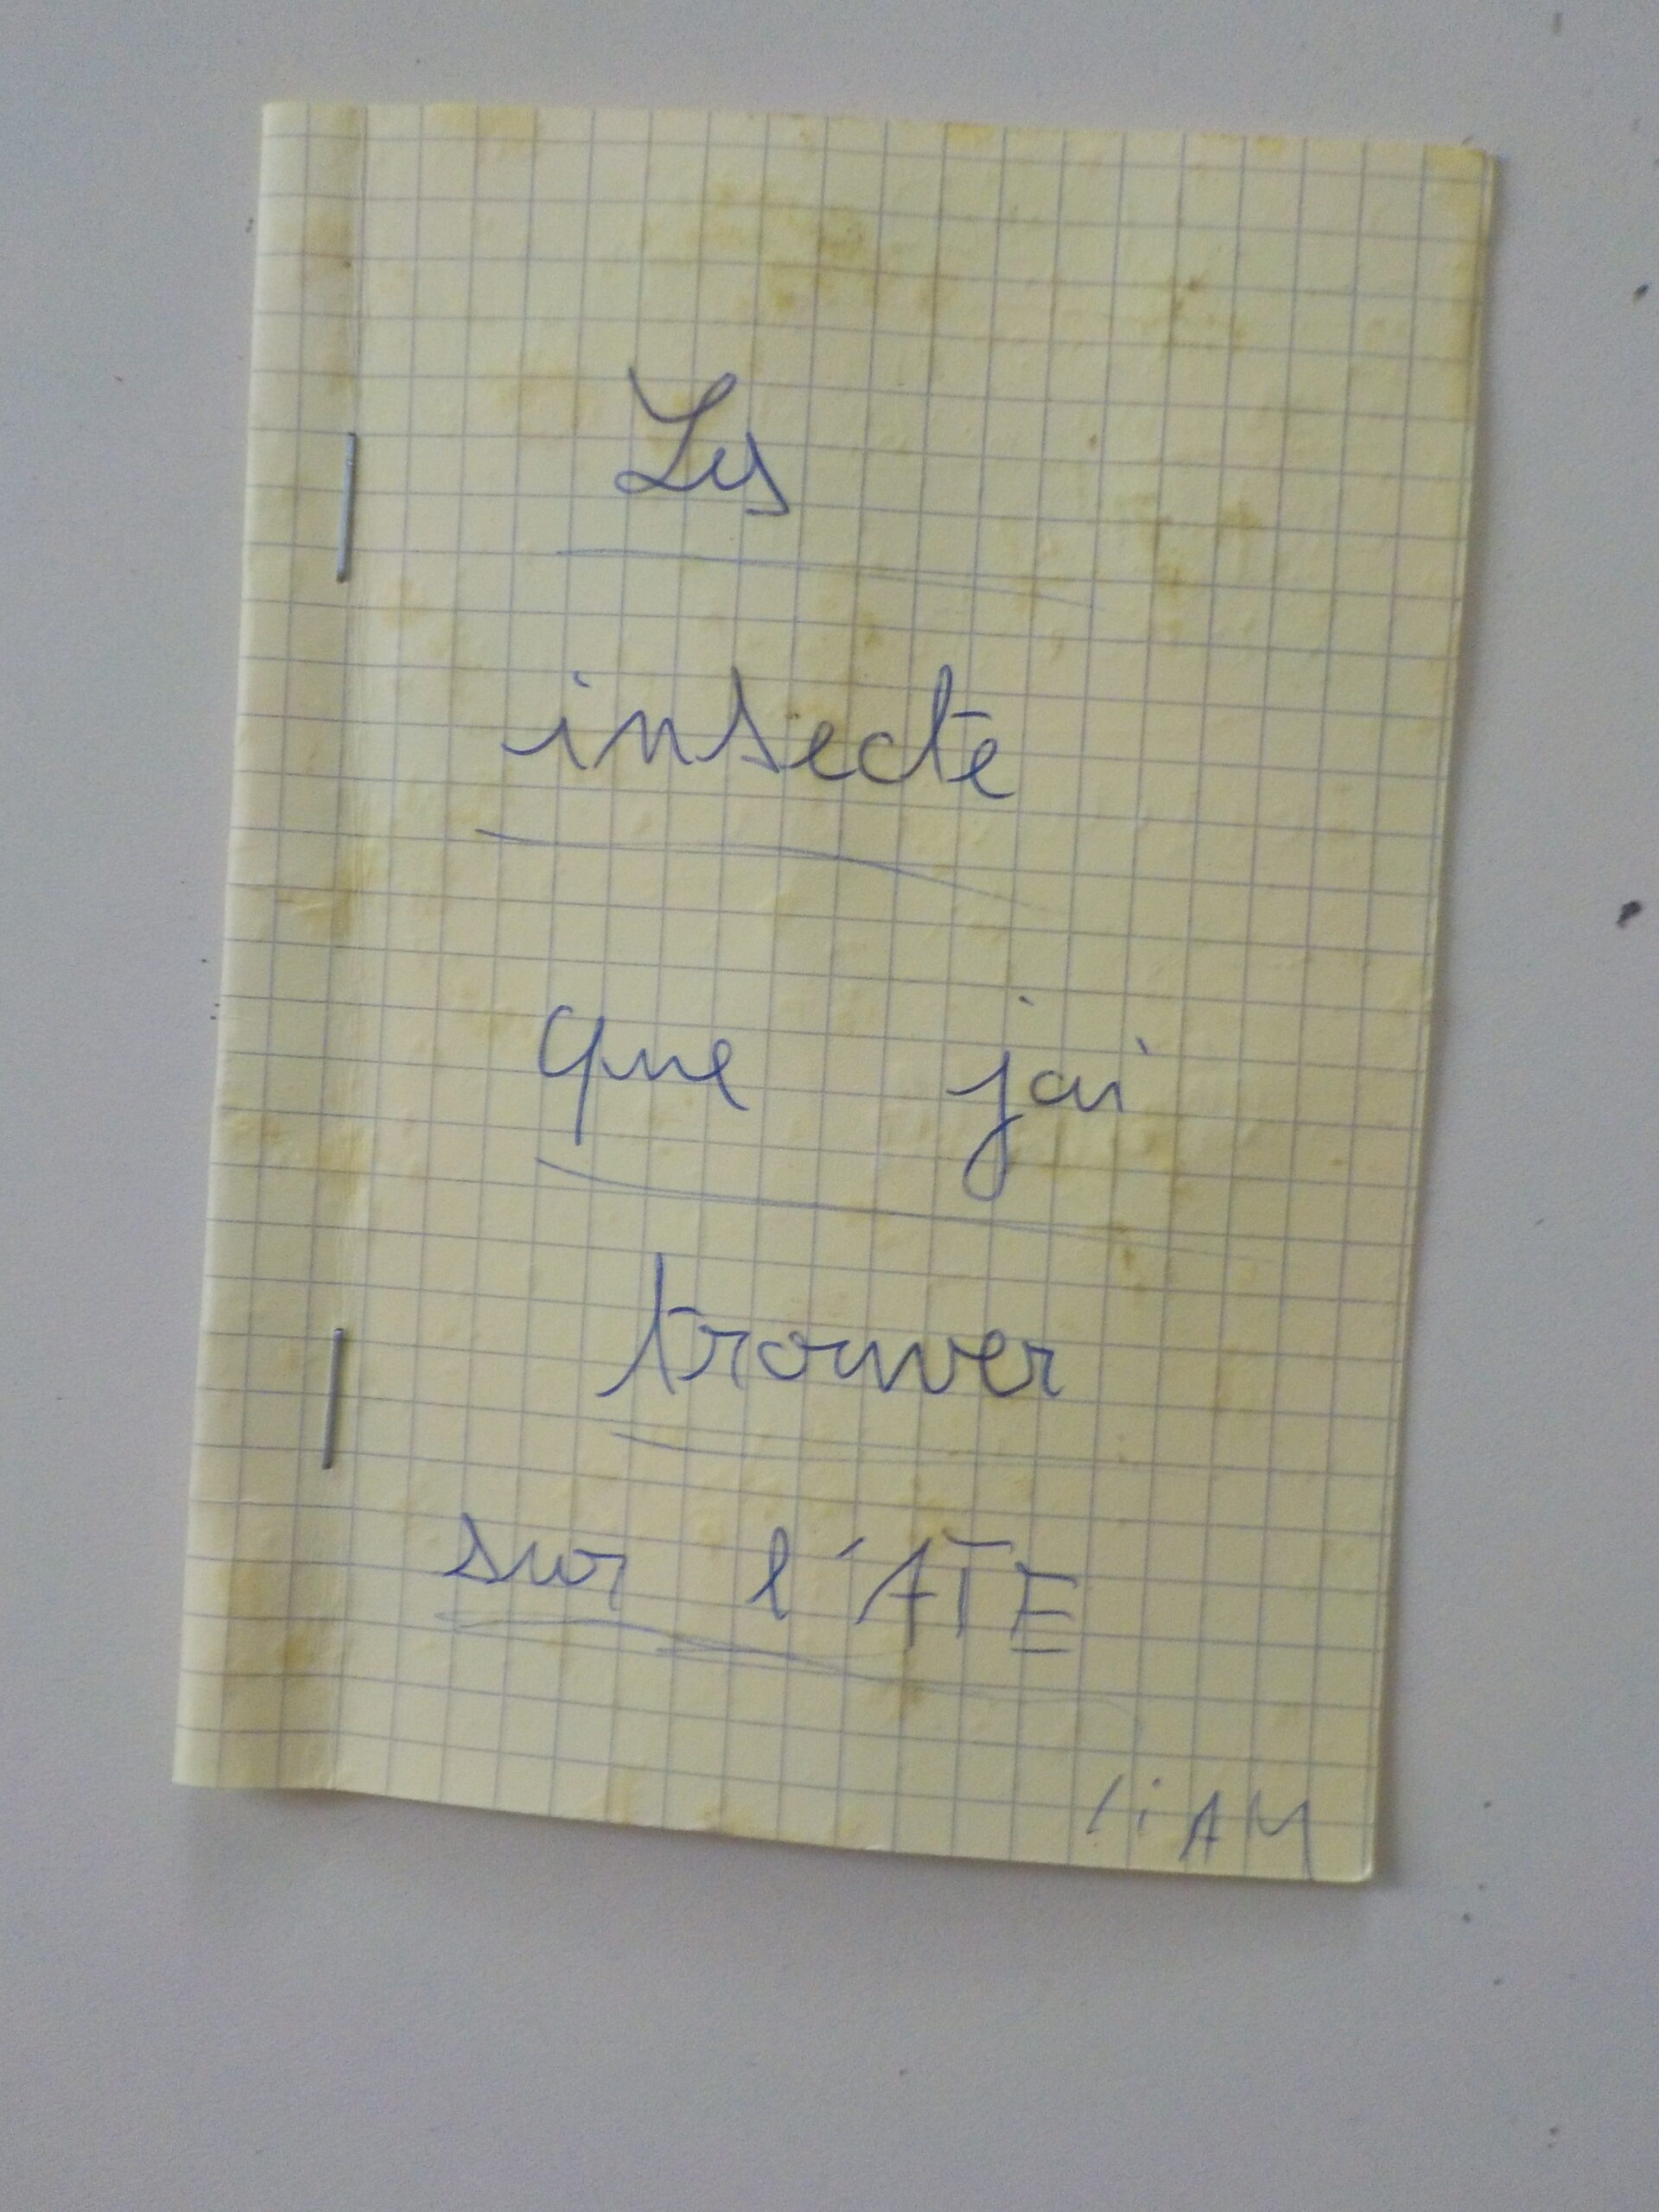 Les
insecte
que jai
trouver
sur l'ATE
LiAM